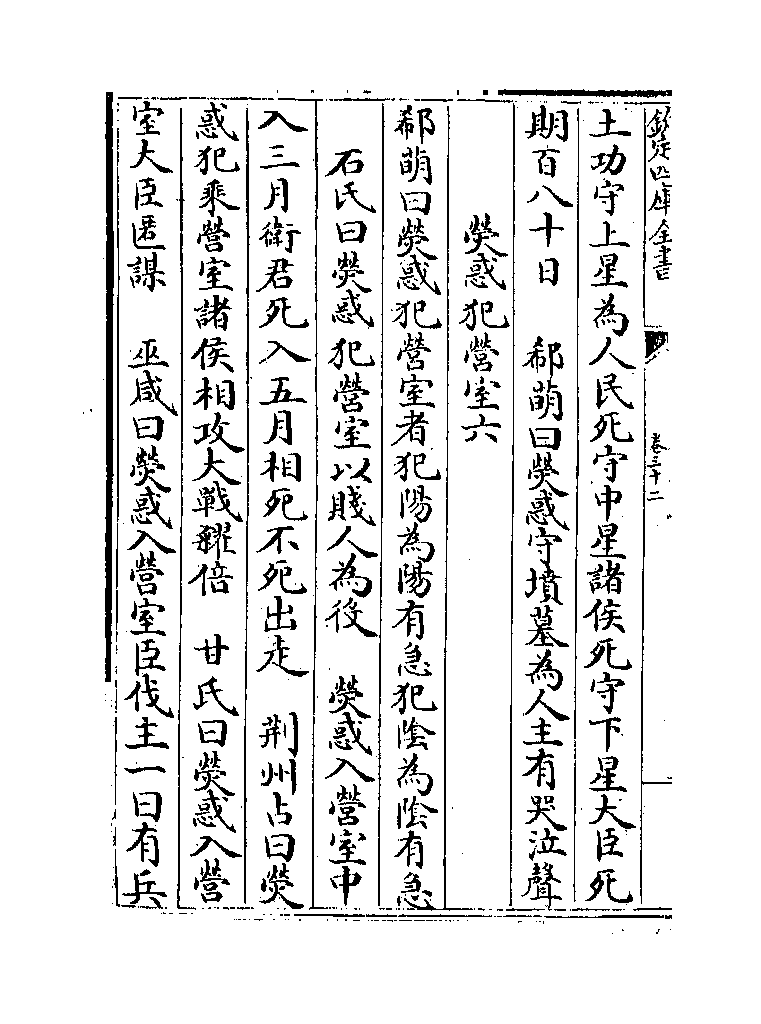 欽定四庫全書
卷三十二
土功守上星為人民死守中星諸侯死守下星大臣死
期百八十日　郗萌曰熒惑守墳墓為人主有哭泣聲
熒惑犯營室六
郗萌曰熒惑犯營室者犯陽為陽有急犯陰為陰有急
石氏曰熒惑犯營室以賤人為役　熒惑入營室中
入三月衛君死入五月相死不死出走　荆州占曰熒
惑犯乘營室諸侯相攻大戰糴倍　甘氏曰熒惑入營
室大臣匿謀　巫咸曰熒惑入營室臣伐主一曰有兵